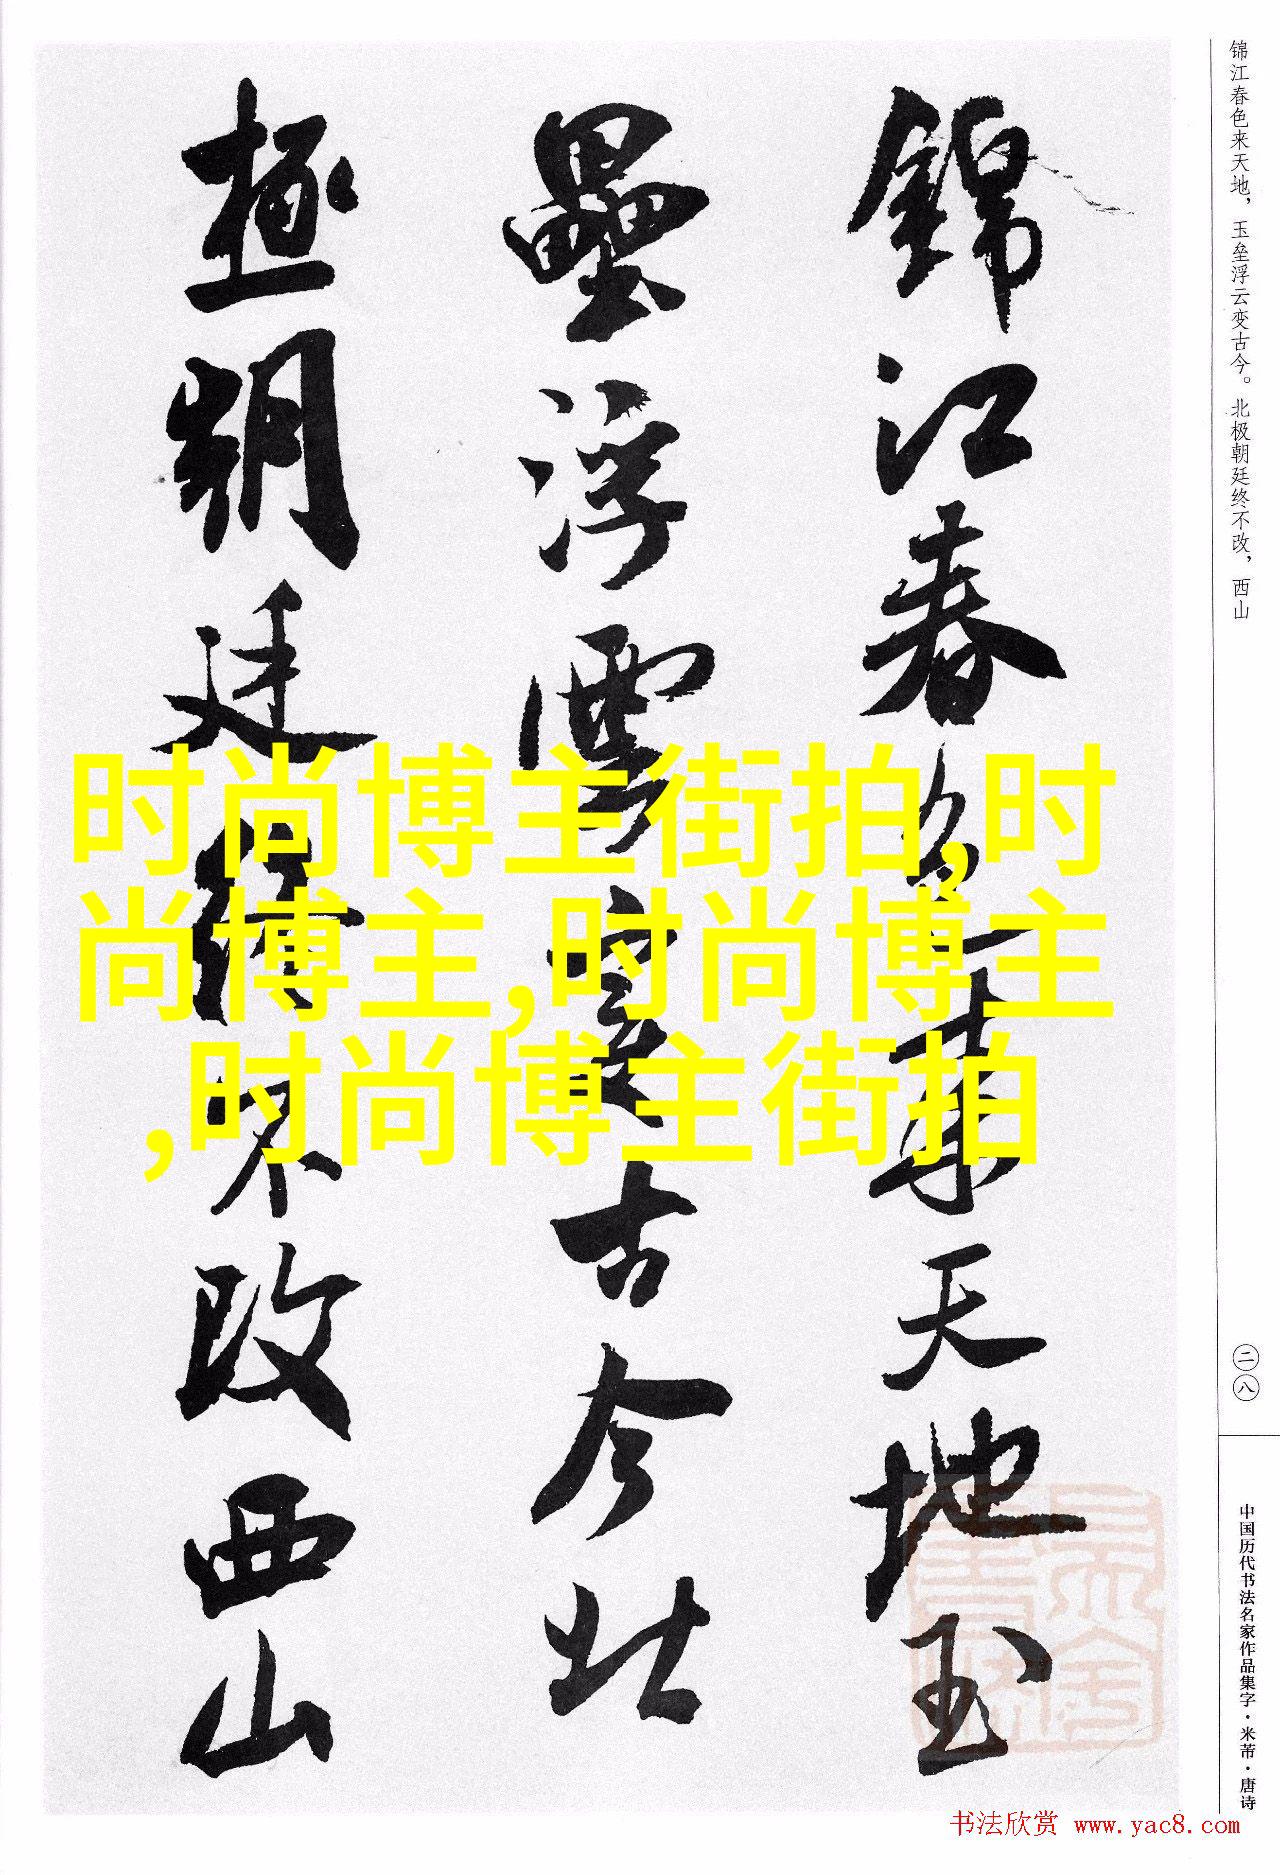 锦江春色来天地，玉垒浮云变古今。北极朝廷终不改，西山
錦江春色来天地玉
壘浮雲變古今北
極朝廷終不改西山
时尚博主街拍,时
尚博主,时尚博主
,时尚博主街拍
二八
中国历代书法名家作品集字·米芾·唐诗
书法欣赏 www.yac8.com